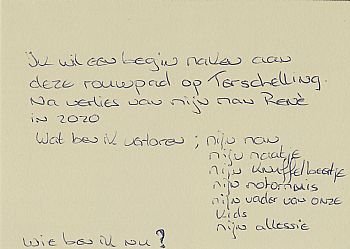 Ik wil een begin maken aan
deze rouwpad op Terschelling.
Na verlies van mijn man Renè
in 2020
Wat ben ik verloren ; mijn man
mijn maatje
mijn knuffelbeertje
mijn motormuis
mijn vader van onze
kids
mijn allessie
Wie ben ik nu?